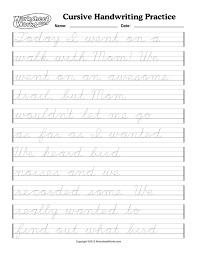 WorksheetWorks.com
Cursive Handwriting Practice
Name: Date:
Today I went on a
walk with Mom! We
went on an awesome
trail, but Mom
wouldnt let me go
as far as I wanted.
We heard bird
noises and we
recorded some. We
really wanted to
find out what bird